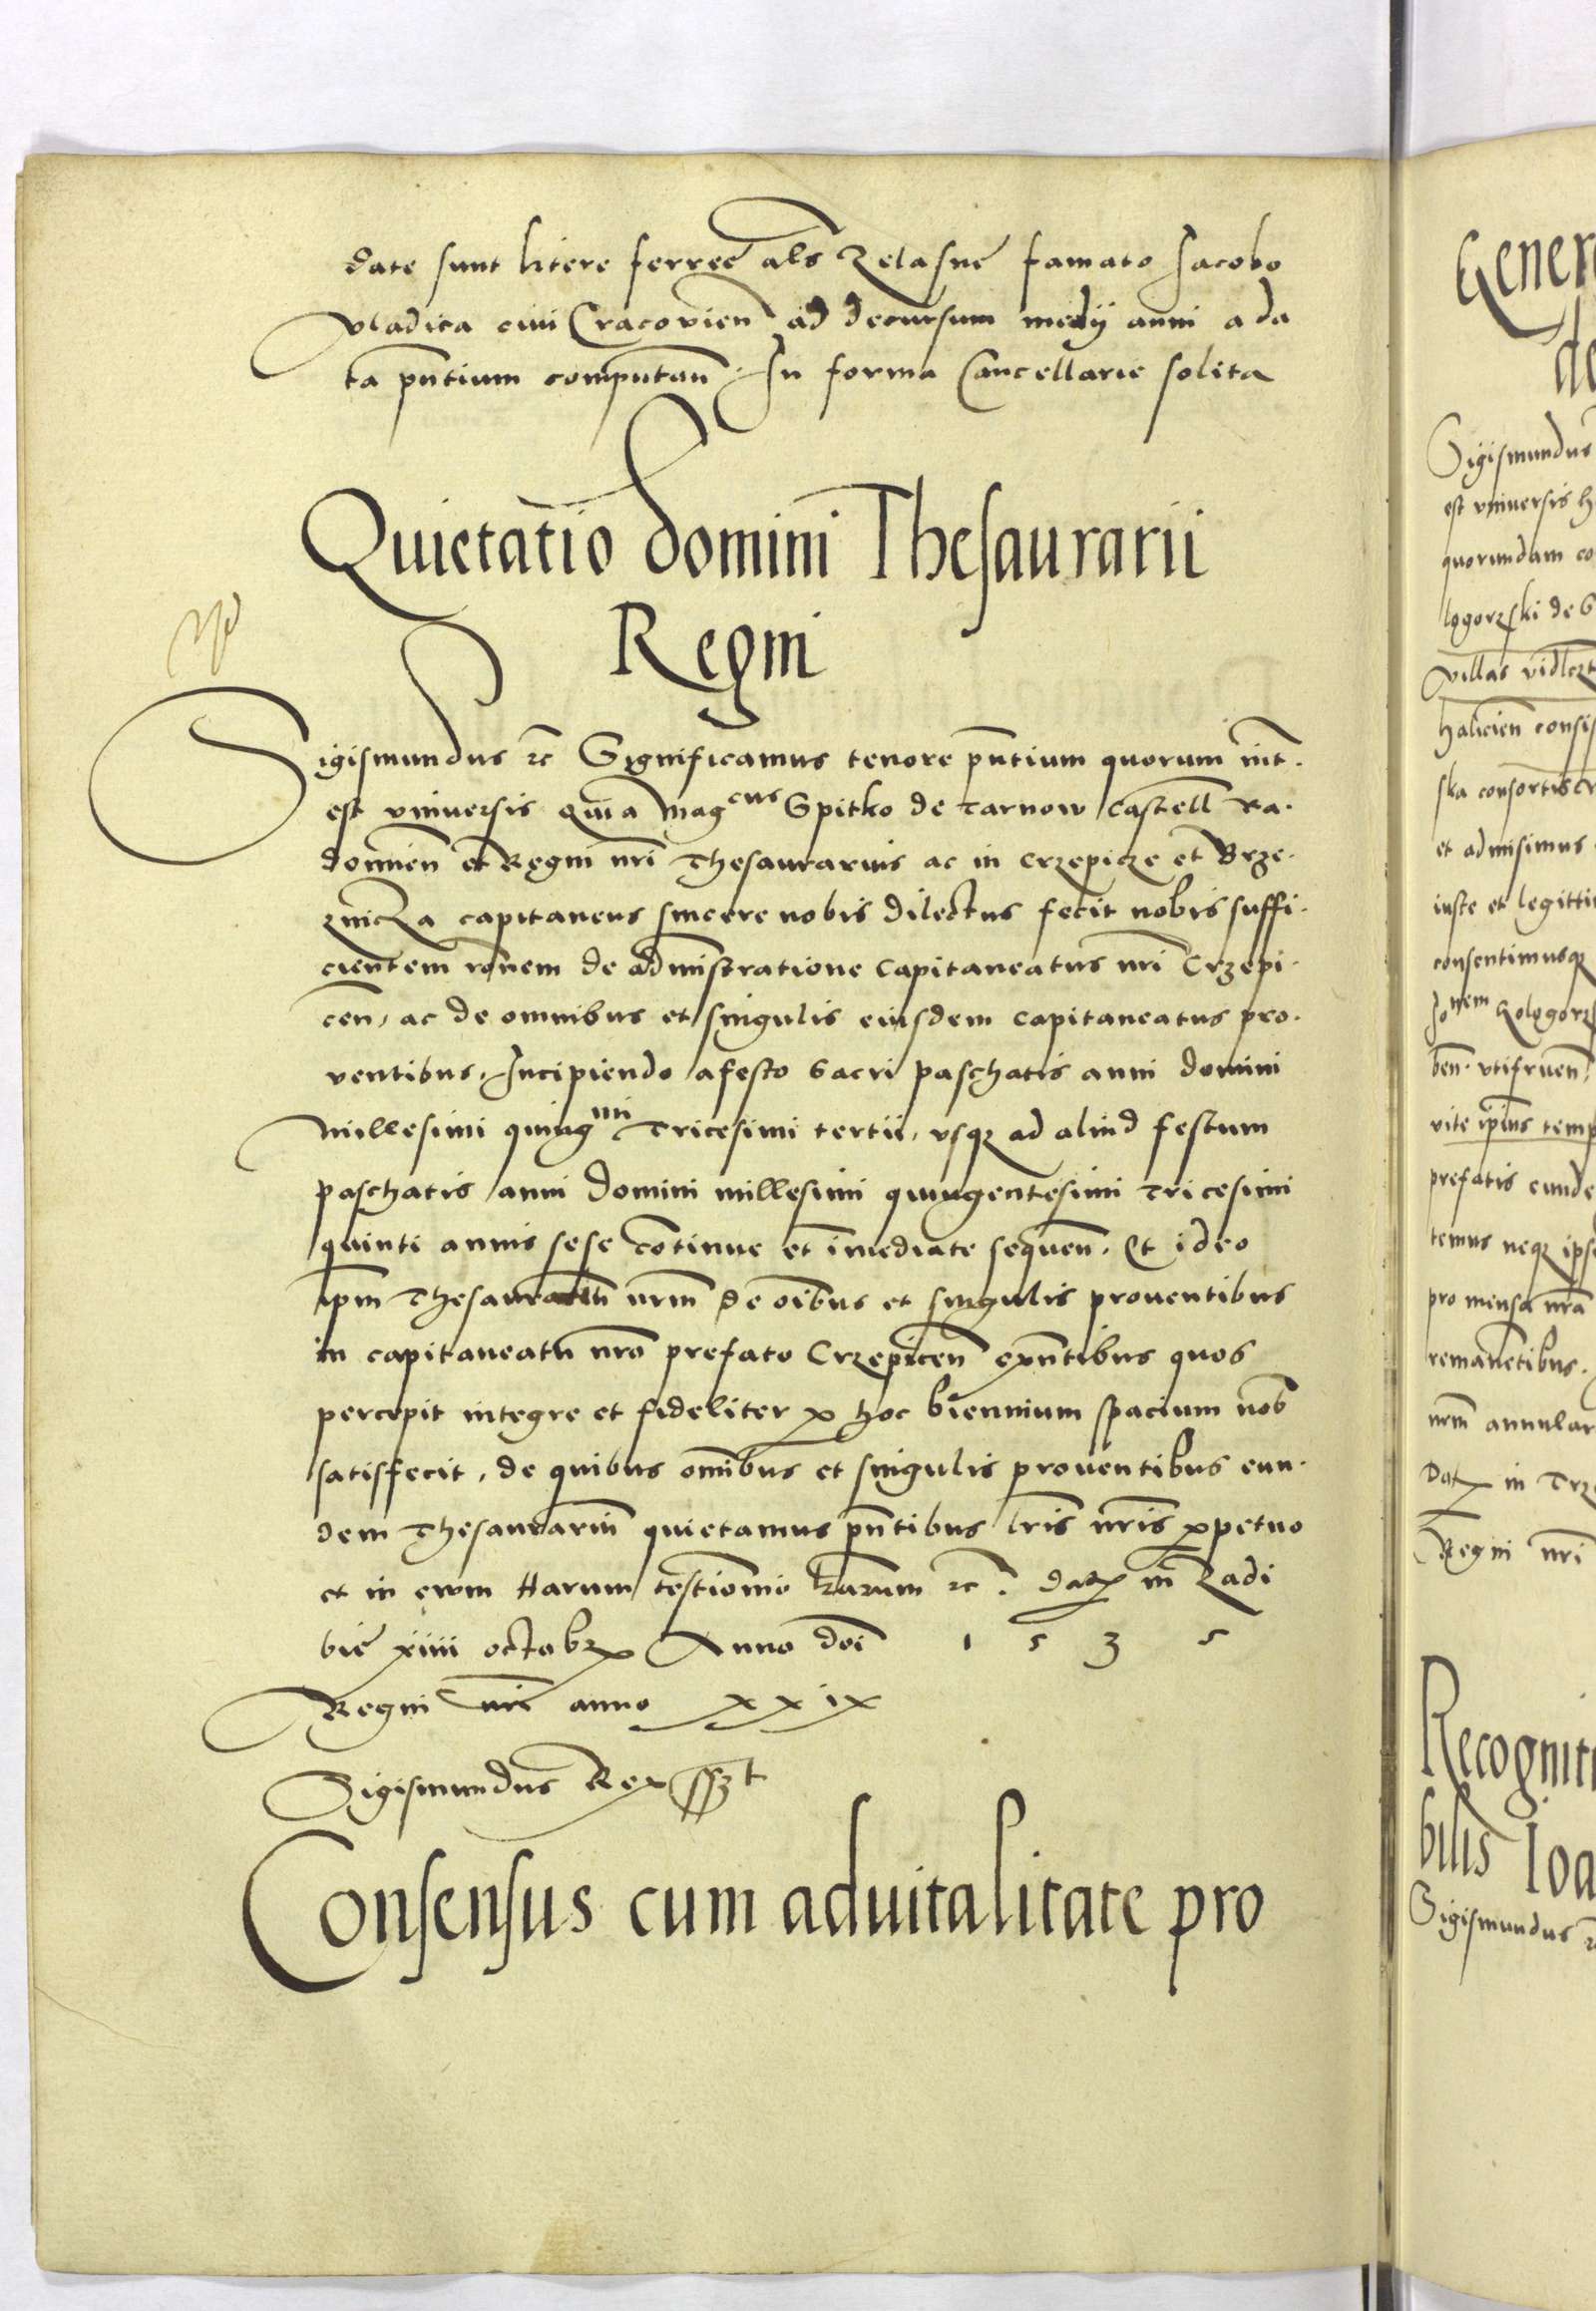 date sunt litere ferree als Zelasne famato Jacobo
Vladica ciui Cracouien ad decursum medij anni a da
ta pntium computan. In forma Cancellarie solita
Quietatio domini Thesaurarii
Regni
Sigismundus rc Significamus tenore pntium quorum int.
est vniuersis quia Mag cus Spitko de Tarnow Castell Ra.
domien et Regni nri Thesaurarius ac in Crzepicze et Brze.
znicza capitaneus sincere nobis dilectus fecit nobis suffi.
cientem ronem de administratione capitaneatus nri Crzepi.
cen, ac de omnibus et singulis eiusdem capitaneatus pro.
ventibus. Incipiendo a festo sacri paschatis anni domini
Millesimi quing mi Tricesimi tertii, vsq ad aliud festum
paschatis anni domini millesimi quingentesimi tricesimi
quinti annis sese continue et imediate sequen. Et ideo
ipm Thesaurariu nrm de oibus et singulis prouentibus
in capitaneatu nro prefato Crzepicen exntibus quos
percepit integre et fideliter p hoc biennium spacium nob
satisfecit, de quibus omibus et singulis prouentibus eun.
dem Thesaurariu quietamus pntibus lris nris ppetuo
et in ewm Harum testimonio lrarum rc. Dat in Radi
bie xiiii octobr Anno doi 1 5 3 5
Regni nri anno xxix
Sigismundus Rex sszt
Consensus cum aduitalitate pro
Gener
de
Sigismundus
est vniuersis h
quorundam co
logorzski de G
villas vidlczt
halicien consis
ska consortis
et admisimus
iuste et legitti
consentimusq
Jo nem Kologorz
ben. vtifruen
vite ipius temp
prefatis eunde
temus neq ips
pro mensa nra
remanetibus.
nrm annular
Dat in Crz
Regni nri
Recogniti
bilis Ioa
Sigismundus